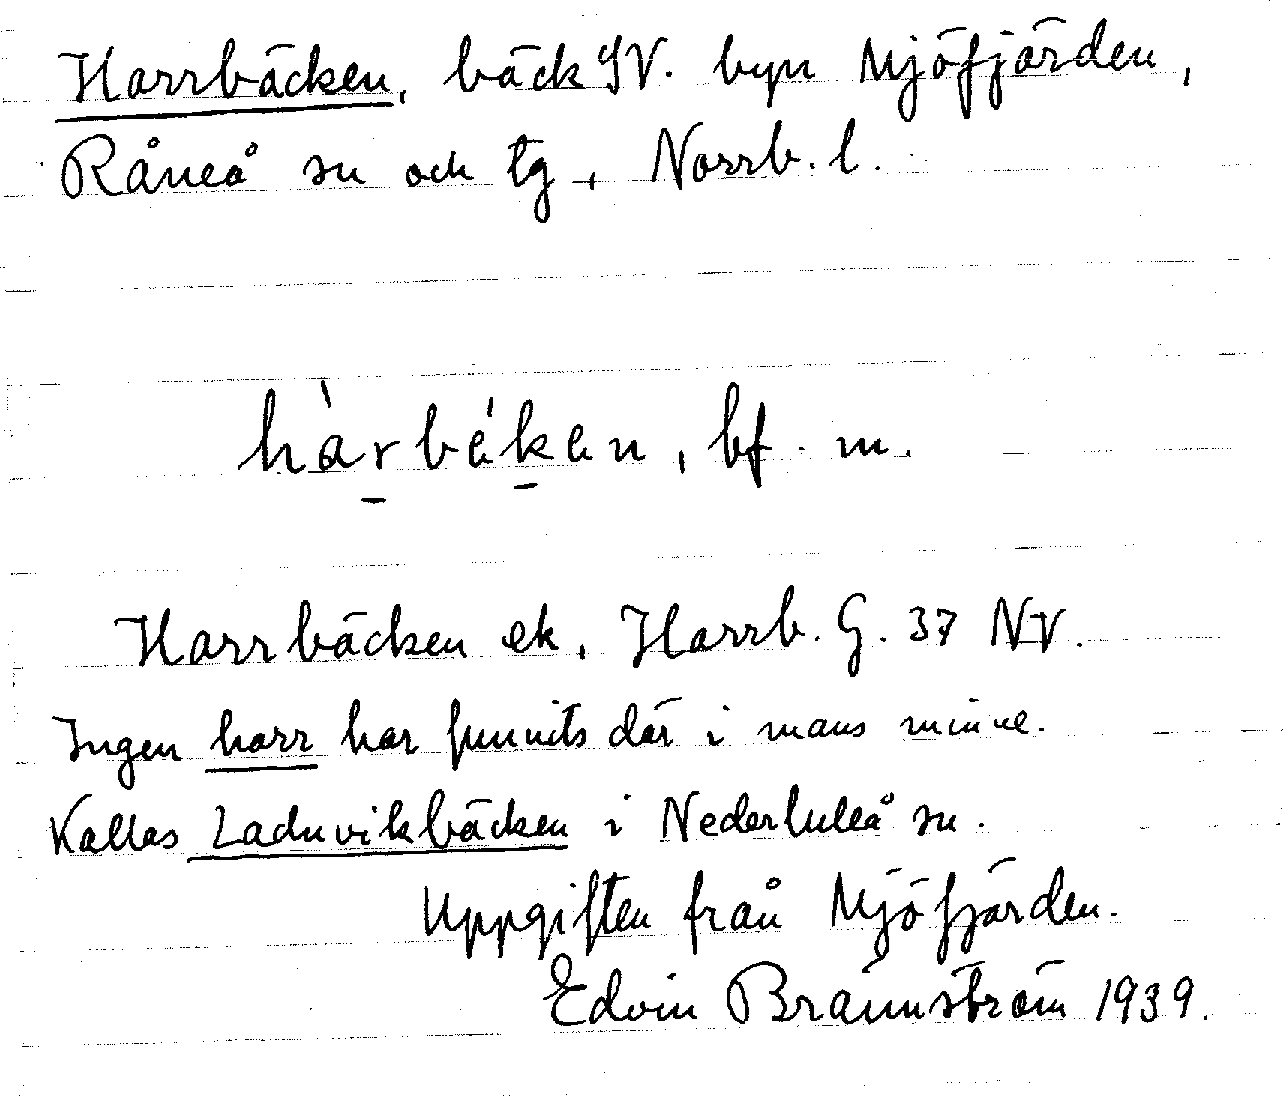 Harrbäcken, bäck SV. byn Mjöfjärden,
Råneå sn och tg, Norrb. l.
hàr̲bék̲en, bf. m.
Harrbäcken ek. Harrb. G. 37 NV.
Ingen harr har funnits där i mans minne.
Kallas Laduvikbäcken i Nederluleå sn.
Uppgiften från Mjöfjärden.
Edvin Brännström 1939.